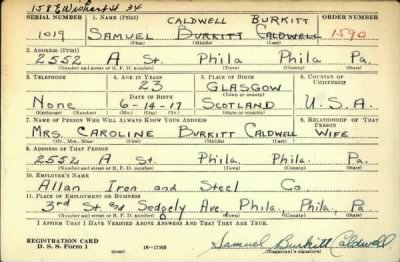 158 E Wishart St 34
SERIAL NUMBER 1. NAME (Print) ORDER NUMBER
CALDWELL BURKITT
1019 SAMUEL BURKITT CALDWELL 1590
(First) (Middle) (Last)
2. ADDRESS (Print)
2552 A St. Phila Phila Pa.
(Number and street or R. F. D. number) (Town) (County) (State)
3. TELEPHONE 4. AGE IN YEARS 5. PLACE OF BIRTH 6. COUNTRY OF CITIZENSHIP
23 GLASGOW
DATE OF BIRTH (Town or county)
None 6-14-17 SCOTLAND U.S.A.
(Exchange) (Number) (Mo.) (Day) (Yr.) (State or country)
7. NAME OF PERSON WHO WILL ALWAYS KNOW YOUR ADDRESS 8. RELATIONSHIP OF THAT PERSON
MRS. CAROLINE BURKITT CALDWELL WIFE
(Mr., Mrs., Miss) (First) (Middle) (Last)
9. ADDRESS OF THAT PERSON
2552 A St. Phila. Phila. Pa.
(Number and street or R. F. D. number) (Town) (County) (State)
10. EMPLOYER'S NAME
Allan Iron and Steel Co.
11. PLACE OF EMPLOYMENT OR BUSINESS
3rd St. and Sedgely Ave, Phila, Phila, Pa.
(Number and street or R. F. D. number) (Town) (County) (State)
I AFFIRM THAT I HAVE VERIFIED ABOVE ANSWERS AND THAT THEY ARE TRUE.
REGISTRATION CARD
D. S. S. Form 1 (over) 16-17105 Samuel Burkitt Caldwell
(Registrant's signature)